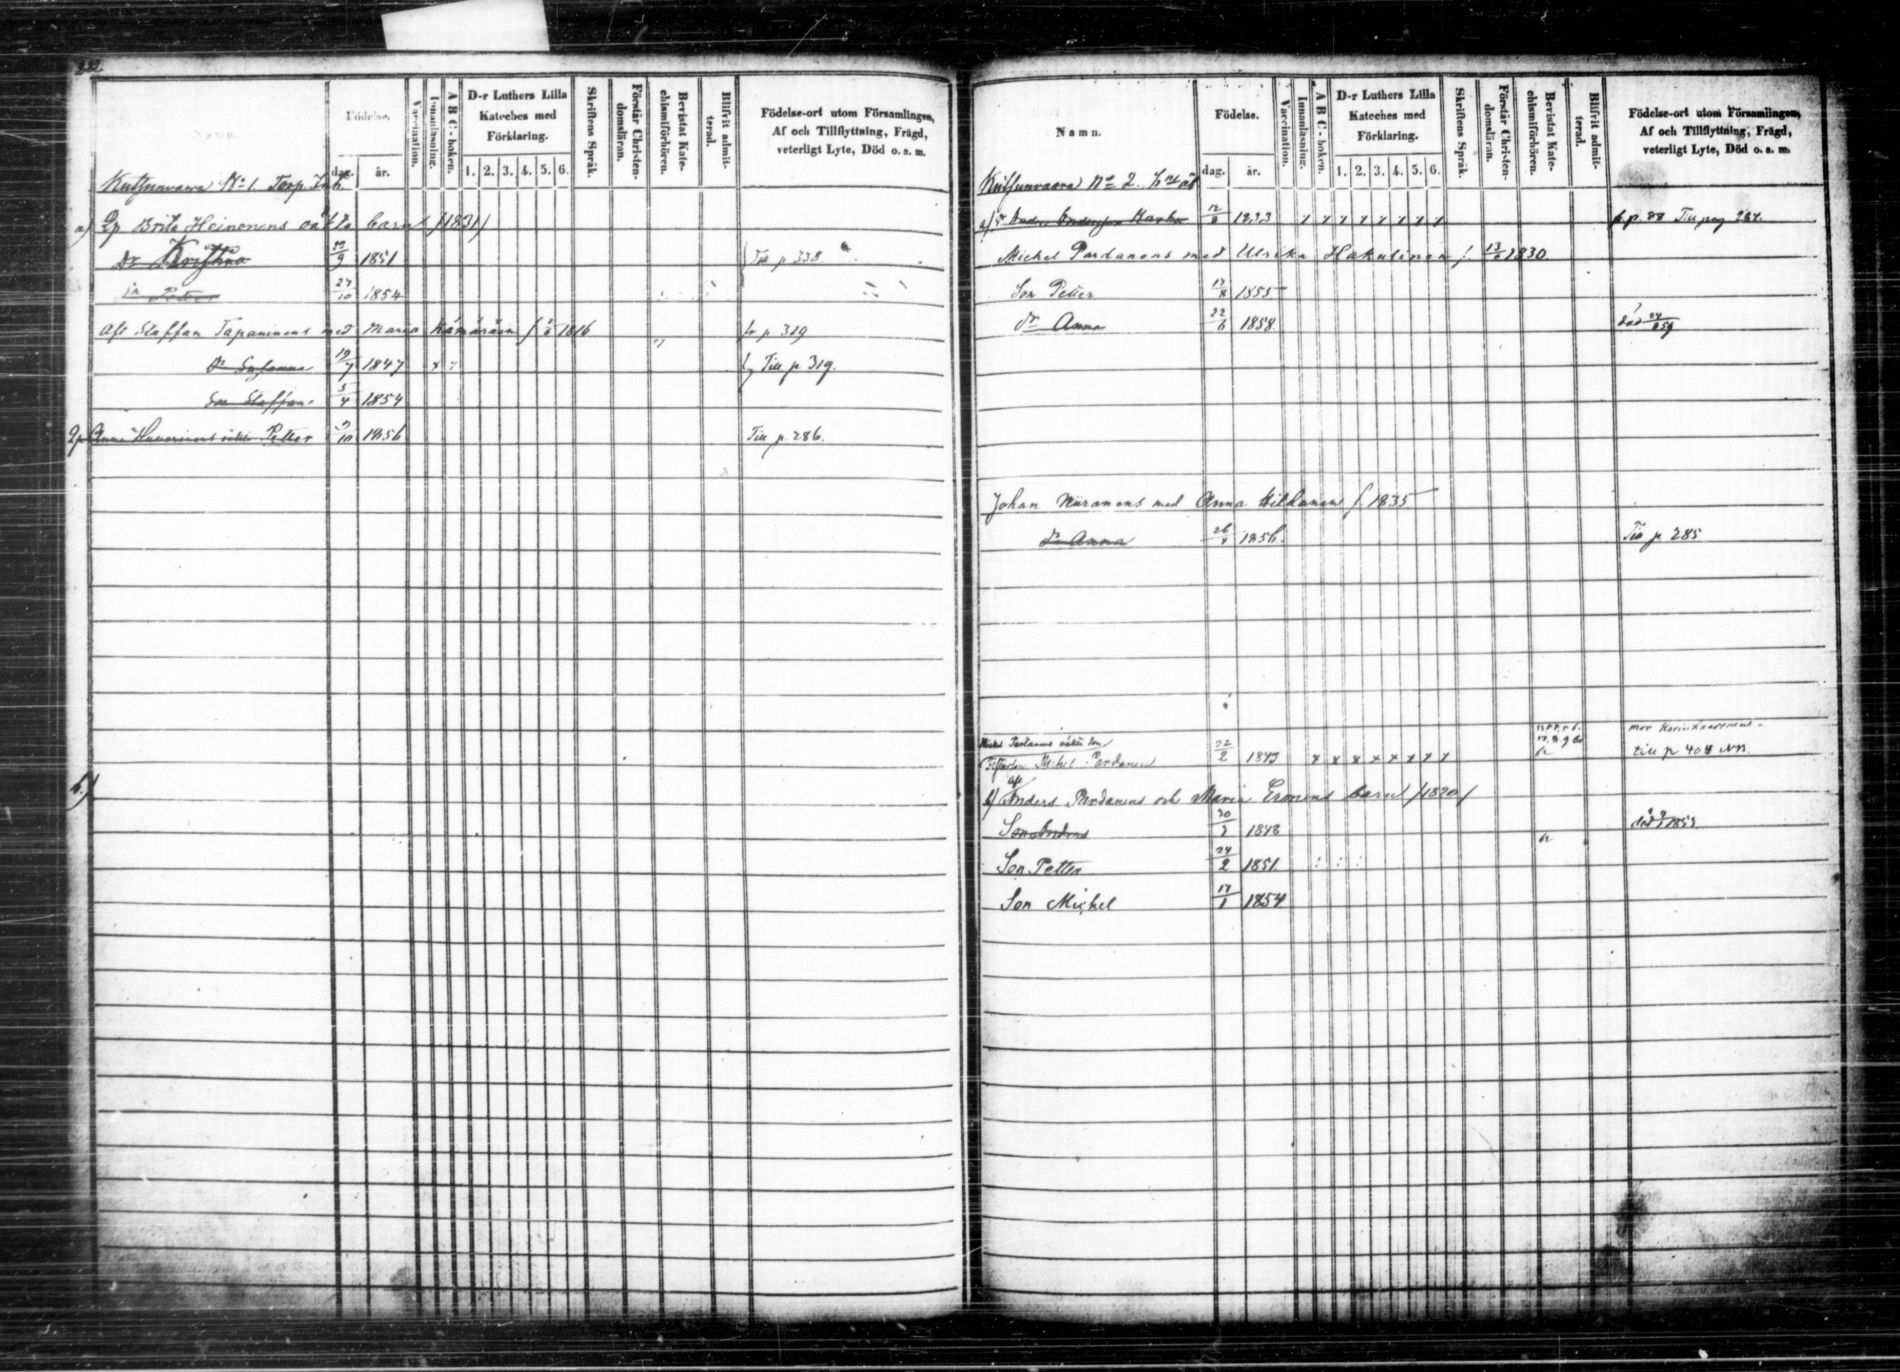 Namn.
Födelse.
dag. år.
Vaccination.
Innanläsning.
A B C-boken.
D-r Luthers Lilla
Kateches med
Förklaring.
1. 2. 3. 4. 5. 6.
Skriftens Språk.
Förstår Christen-
domsläran.
Bevistat Kate-
chismiförhören.
Blifvit admit-
terad.
Födelse-ort utom Församlingen,
Af och Tillflyttning, Frägd,
veterligt Lyte, Död o. s. m.
Kutsunvaara No 1. Torp. Inh.
a) Qp Brita Heinonens oäkta barn (1831)
Dr Kristina 9 1851 Till p. 338
Sn Petter 27/10 1854
Afl Staffan Tapaninens med Maria Kämäräin f 1816 fr p. 319
Dr Susanna 19/7 1847 x Till p 319.
Son Staffan 5/4 1854
Qp Anna oäkta Petter 10 1856 Till p. 286.
b)
Namn.
Födelse.
dag. år.
Vaccination.
Innanläsning.
A B C-boken.
D-r Luthers Lilla
Kateches med
Förklaring.
1. 2. 3. 4. 5. 6.
Skriftens Språk.
Förstår Christen-
domsläran.
Bevistat Kate-
chismiförhören.
Blifvit admit-
terad.
Födelse-ort utom Församlingen,
Af och Tillflyttning, Frägd,
veterligt Lyte, Död o. s. m.
Kutsunvaara No 2.
a) Andersson 12/8 1833 x x x x x x x x f. p. 88 Till pag 287.
Michel Pardanens med Ulrika Hakulinen f. 1830
Son Petter 17/8 1855
dr Anna 22/6 1858 död
Johan Näränens med Anna Hildanen f 1835
dr Anna 26 1856 Till p 285
Michel Pardanens oäkta son
Michel Pardanen 22/2 1843 x x x x x x x x till p 404
mor Karin
b) afl Anders Pardanens och Maria Eronens barn (1820)
Son Anders 20/2 1848 död 1853
Son Petter 24/2 1851
Son Michel 17/1 1854